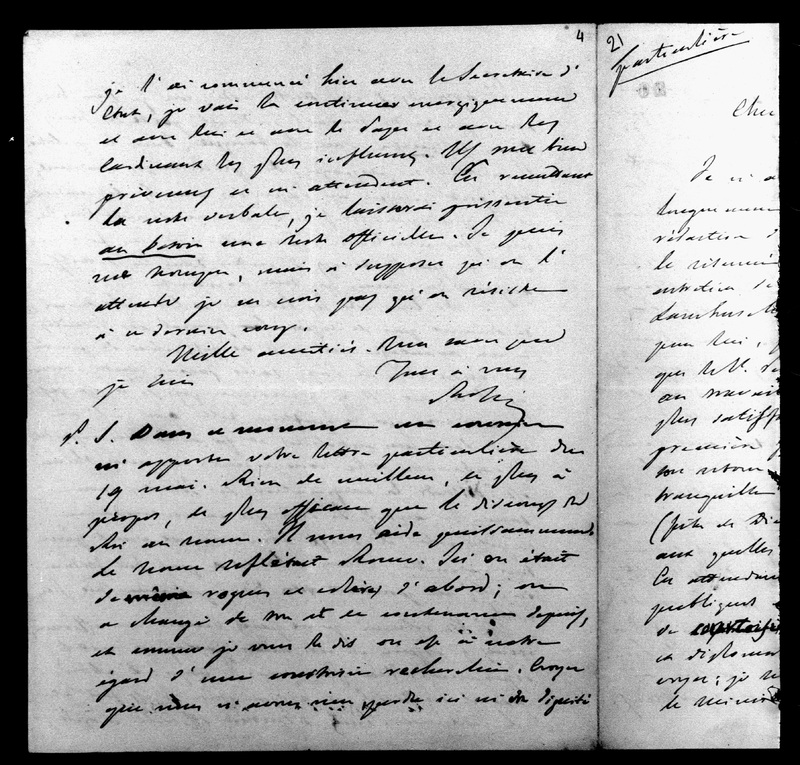 4
je l'ai commencé hier avec le Secrétaire d'
Etat, je vais la continuer énergiquement
et avec lui et avec le Pape et avec les
Cardinaux les plus influens. Ils sont bien
prévenus et m'attendent. En remettant
la note verbale, je laisserai pressentir
au besoin une note officielle. Je puis
me tromper, mais à supposer qu'on l'
attende je ne crois pas qu'on résiste
à ce dernier coup.
Mille amitiés.
je suis Tout à vous
Rossi
P. S. Dans ce moment un courrier
m'apporte votre lettre particulière du
19 mai. Rien de meilleur, de plus à
propos, de plus efficace que le discours du
Roi au nonce. Il nous aide puissamment.
Le nonce reflétait Rome. Ici on était
de même rogues et colères d'abord; on
a changé de ton et de contenance depuis,
et comme je vous le dis on est à notre
égard d'une courtoisie recherchée. Croyez
que nous n'avons rien perdu ici ni en dignité
21
particulière
Cher
Je n'a
longuement
rédaction d
le
entretien de
Lambrusc
pour lui,
que M. de
au travail
plus satisf
première
son retour
tranquille
(fête de Die
aux quelles
En attendan
publiques
de
et diploma
croyez; je
le minis